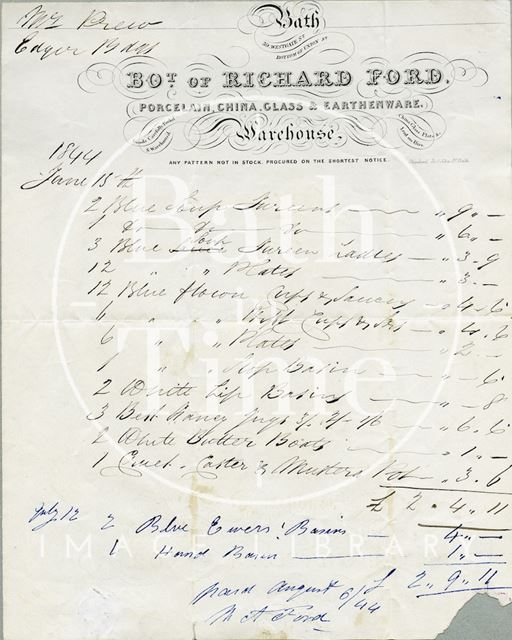 Mr Drew
Edgar Bdgs
Bath
29, WESTGATE ST
BOTTOM OF UNION ST
BOT. OF RICHARD FORD,
PORCELAIN, CHINA, GLASS & EARTHENWARE,
Goods Carefully Packed & Warehoused.
China, Glass, Plate &c. Lent on Hire.
Warehouse.
ANY PATTERN NOT IN STOCK, PROCURED ON THE SHORTEST NOTICE.
1844
June 15th
2 Blue Soup Tureens " 9 " –
Do Do " 6 " –
3 Blue Tureen Ladles " 3 . 9
12 " " Plates " 3 . –
12 Blue flown Cups & Saucers " 4 . 6
6 " " Cups & " 4 . 6
6 " " Plates " 2 . –
1 " Basin " – 6
2 White Basins " – 8
3 Best Fancy Jugs " 6 . 6
2 White Butter Boats " 1 " –
1 Cruet . Caster & Mustard Pot " 3 . 6
£ 2 . 4 . 11
July 12 2 Blue Ewers & Basins 4 " –
1 Hand Basin 1 " –
£ 2 . 9 . 11
paid August 6/44
Ford
Bath in Time
IMAGE LIBRARY